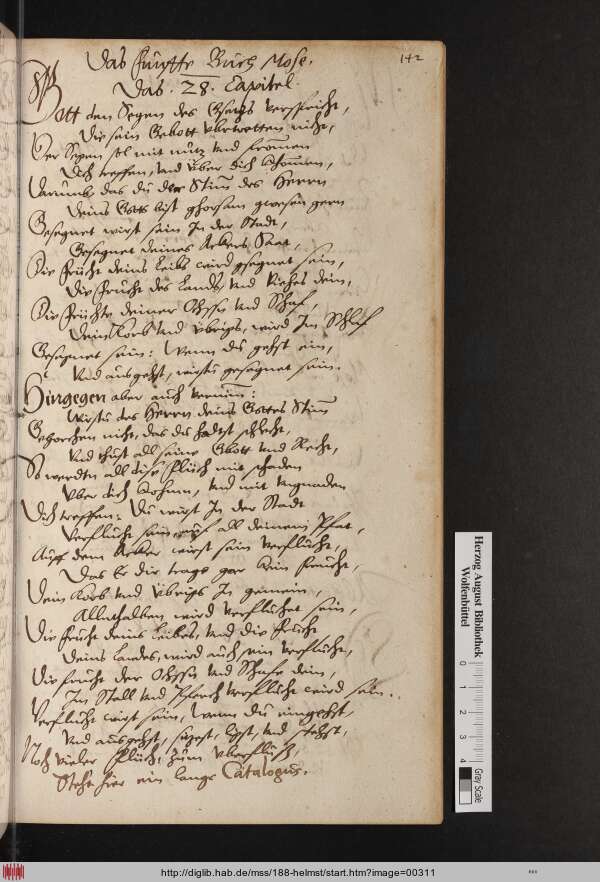 142
Das Fünffte Buch Mose.
Das . 28. Capitel.
Gott den Segen des Gsatzs verspricht,
Die sein Gebott vbertretten nicht,
Der Segen sol mit nutz vnd frommen
Dich treffen, vnd vber dich kommen,
Darumb das du der Stim des Herrn
Deins Gotts bist ghorsam gwesen gern
Gesegnet wirst sein In der Stadt,
Gesegnet deines Ackers Saat,
Die frücht deins leibs wird gsegnet sein,
Die frucht des Lands, vnd Viehes dein,
Die früchte deiner Ochssn vnd Schaf,
Dein Korb vnd vbrigs, wird Im
Gesegnet sein: Wenn du gehst ein,
Vnd ausgehst, wirstu gesegnet sein.
Hingegen aber auch vernim:
Wirstu des Herrn deins Gottes Stim
Gehorchen nicht, das du schlecht,
Vnd thust all seine Gbott vnd Recht,
So werden all dise flüch mit schaden
Vber dich kohmn, vnd mit vngnaden
Dich treffen: Du wirst In der Stadt
Verflucht sein, auf all deinem Pfat,
Auff dem Acker wirst sein verflucht,
Das Er dir trage gar kein frucht,
Dein Korb vnd vbrigs In gemein,
Allenthalben wird verfluchet sein,
Die frucht deins Leibes, vnd die frücht
Deins Landes, wird auch sein verflucht,
Die frucht der Ochssn vnd Schafe dein,
In Stall vnd verflucht wird sein.
Verflucht wirst sein, wenn du eingehst,
Vnd ausgehst, sizest, ligst, vnd stehst,
Noch vieler flüch, zum vberfluß,
Steht hier ein langs Catalogus.
Herzog August Bibliothek
Wolfenbüttel
0 1 2 3 4
Gray Scale
http://diglib.hab.de/mss/188-helmst/start.htm?image=00311